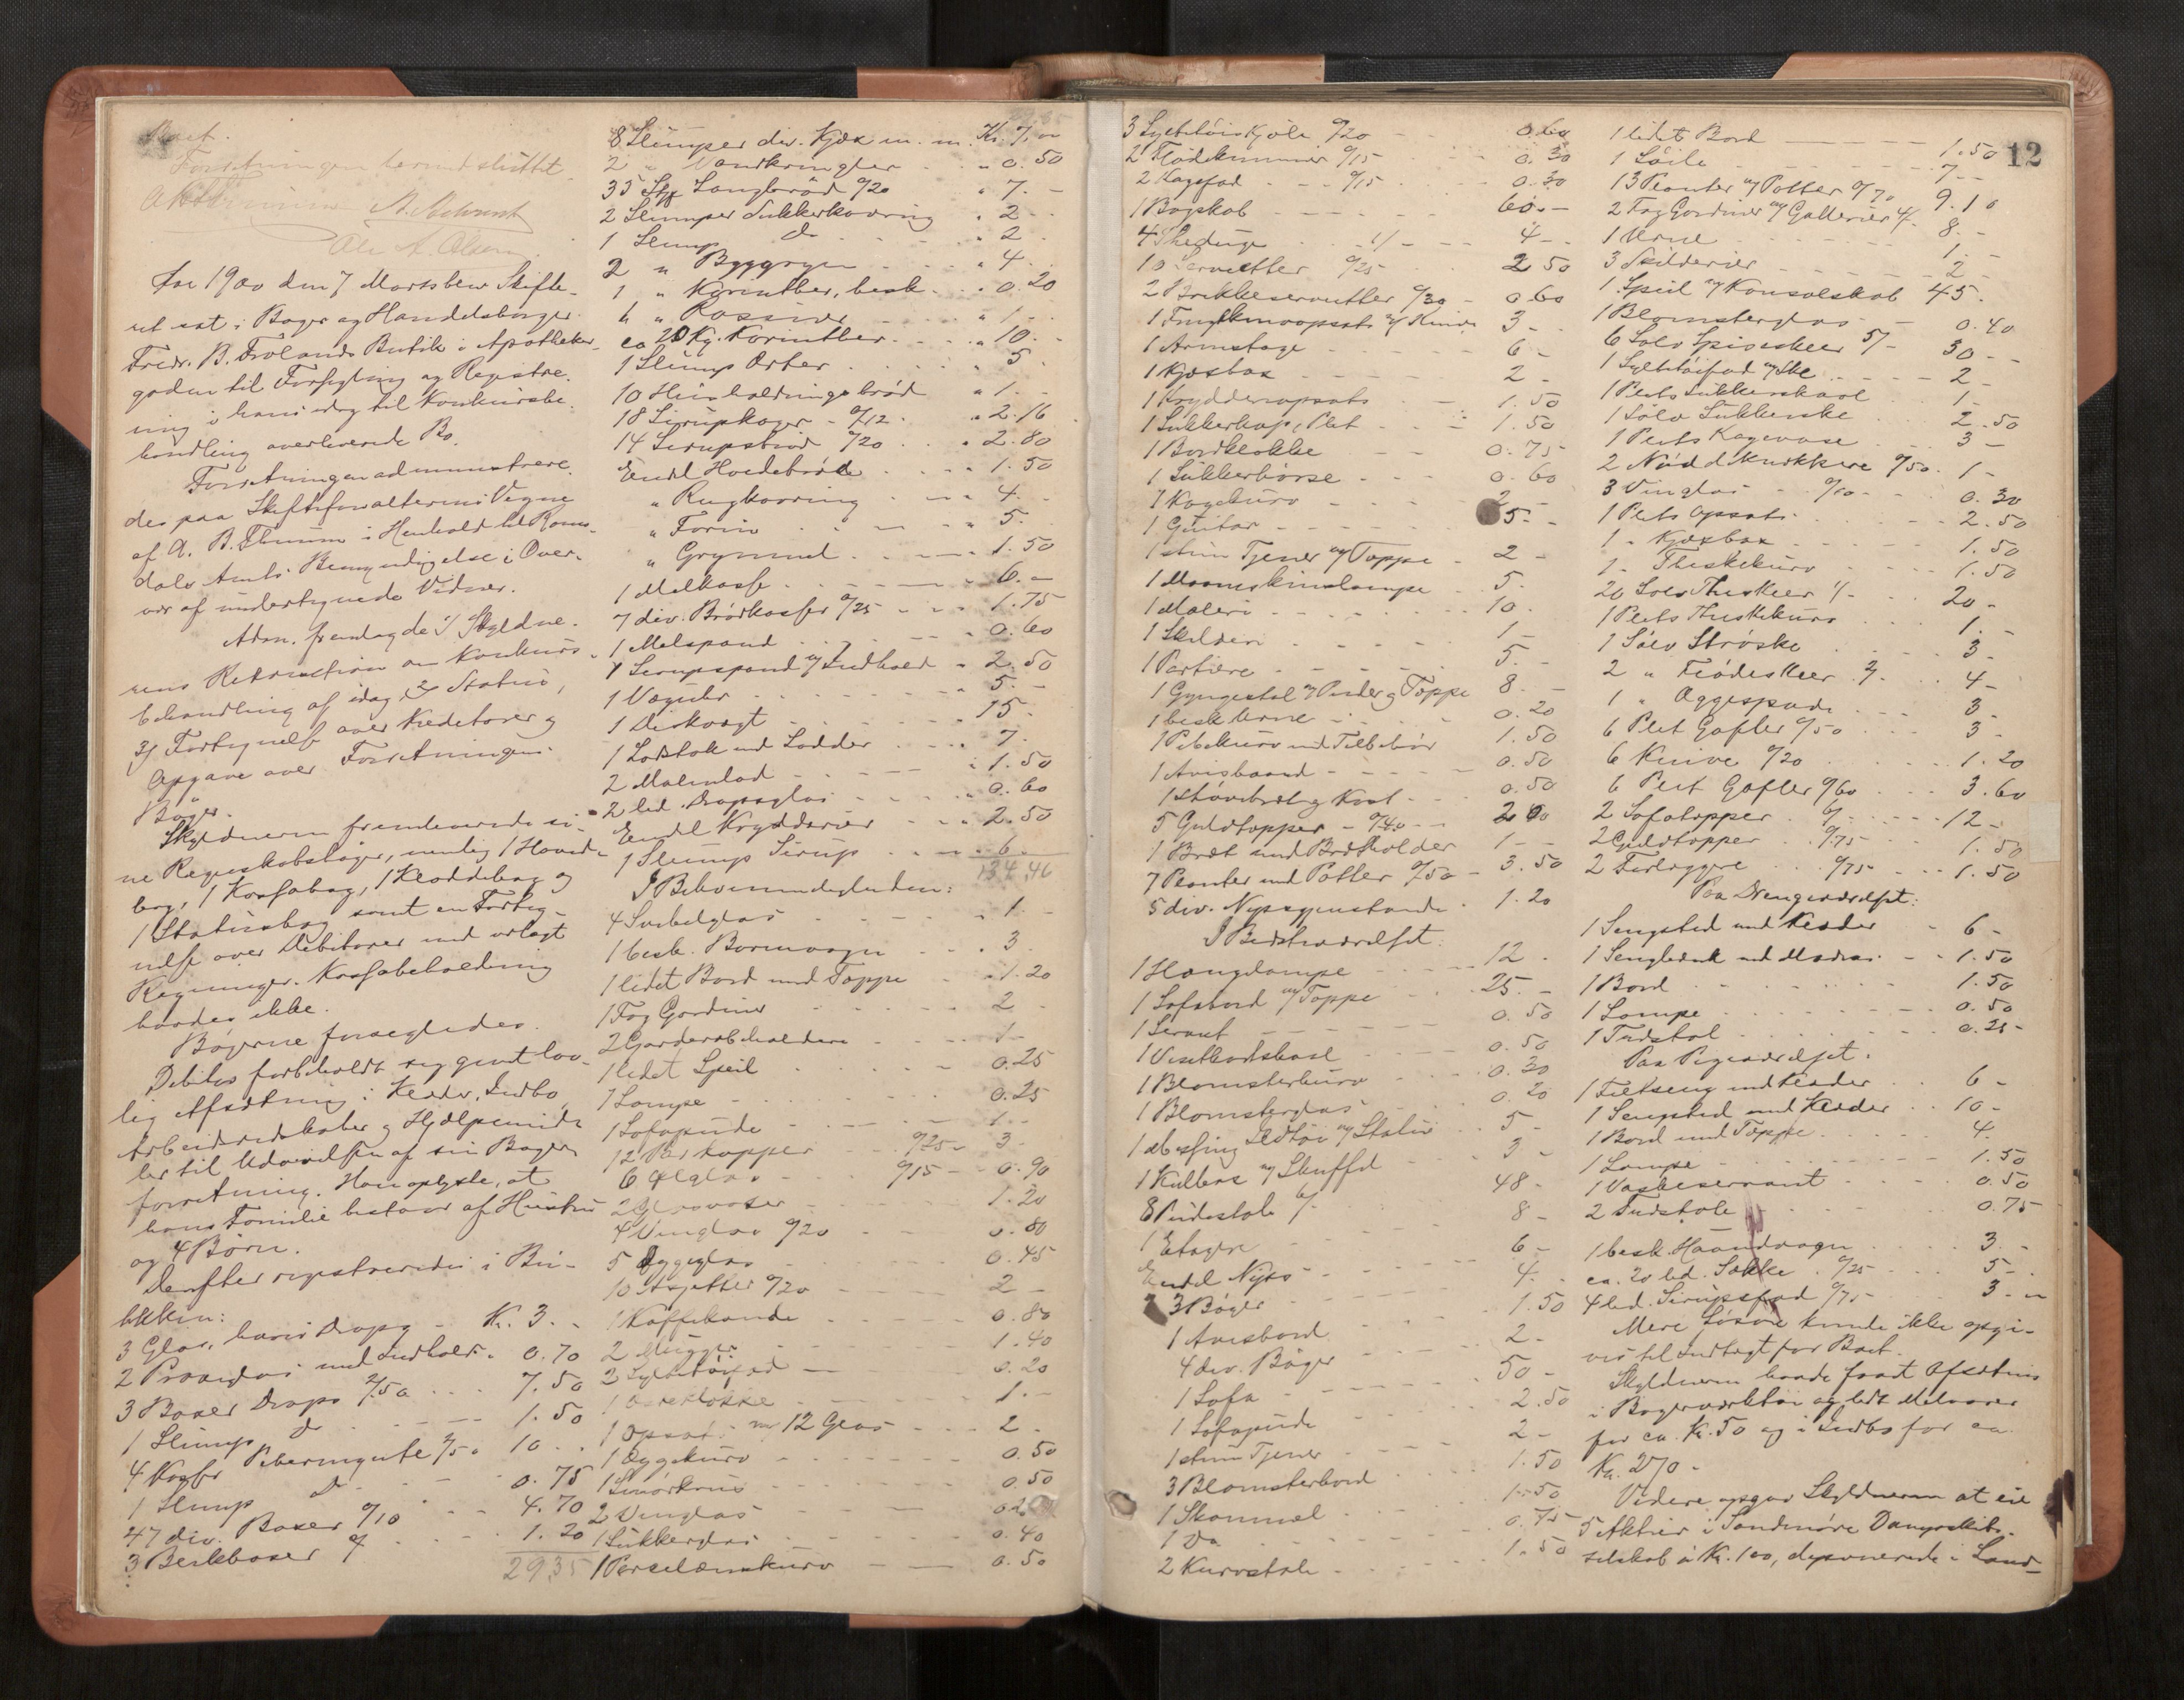 Boet.
Forretningen hermed sluttet.
Ole A. Olsen
Aar 1900 den 7 Marts blev Skifte-
ret sat i Bager og Handelsborger
Fredr. B. Frolands Butik i Apotheker-
gaden til Forsegling og Registre-
ring i hans idag til Konkursbe-
handling overleverede Bo.
Forretningen administrere-
des paa Skifteforvalterens Vegne
af A. B. Thunem i Henhold til Roms-
dals Amts Bemyndigelse i Over-
vær af undertegnede Vidner.
Adm. fremlagde 1/ Skyldne-
rens Rekvisition om Konkurs-
behandling af idag, 2/ Status,
3/ Fortegnelse over Kreditorer og
Opgave over Forretningens
Bøger.
Skyldneren fremleverede si-
ne Regnskabsbøger, nemlig 1 Hoved-
bog, 1 Kassabog, 1 Kladdebog og
1 Statusbog samt en Forteg-
nelse over Debitorer med vedlagt
Regninger. Kassabeholdning
havdes ikke.
Bøgerne forsegledes.
Debitor forbeholdt sig gjort lov-
lig Afsætning i Klæder, Indbo,
Arbeidsredskaber og Hjælpemid-
ler til Udøvelsen af sin Bager-
forretning. Han oplyste, at
hans Familie bestaar af Hustru
og 4 Børn.
Derefter registreredes i Bu-
tikken:
3 Glas, hvori Drops - Kr. 3. -
2 Prøveglas med Indhold. 0.70
3 Boxer Drops 2/50 7.50
1 Slump do 1.50
4 Kasser Pebermynte 2/50 10.
1 Slump do 0.75
47 div. Boxer 0/10 4.70
3 Blikboxer 1.20
2935
8 Slumper div. Kjæx m. m. Kr. 7. -
2 " Vandkringler " 0.50
35 Stk Langbrød 0/20 " 7. -
2 Slumper Sukkerkavring " 2 -
1 Slump do " 2 -
2 " Byggryn " 4 -
1 " Korinther, besk. 0.20
1 " Rossiner " 1 -
ca 20 Kg. Korinther " 10. -
1 Slump Erter 5
10 Husholdningsbrød " 1 -
18 Sirupskager - 0/12 " 2.16
14 Sirupsbrød 0/20 " 2.80
Endel Hvedebrød 1.50
" Rugkavring 4. -
" Farin 5. -
" Grynmel 1.50
1 Melkasse 6. -
7 div. Brødkasser 0/25 1.75
1 Melspand 0.60
1 Sirupsspand m/ Indhold 2.50
1 Væguhr 5. -
1 Diskvægt 15.
1 Lodstok med Lodder 7.
2 Malmlod 1.50
2 led. Dropsglas 0.60
Endel Krydderier 2.50
1 Slump Sirup 6.
134.46
I Bekvemmeligheden:
4 Syltetglas " 1 -
1 besk. Barnevogn 3
1 lidet Bord med Teppe 1.20
1 Fag Gardiner 2 -
2 Garderobeholdere 1 -
1 lidet Speil 0.25
1 Lampe 0.25
1 Sofapude 1. -
12 Par kopper 0/25 - 3 -
6 Ølglas 0/15 - 0.90
2 Glasvaser 1.20
4 Vinglas 0/20 0.80
5 Æggeglas 0.45
10 Asjetter 0/20 2 -
1 Kaffekande 0.80
2 Mugger 1.40
2 Syltetøifad 0.20
1 Osteklokke 1. -
1 Opsats m/ 12 Glas 2 -
1 Æggekurv 0.50
1 Smørkrus 0.50
2 Vinglas
1 Sukkerglas 0.40
1 Porcelænskurv 0.50
3 Syltetøiskjole 0/20 0.60
2 Flødekummer 0/15 0.30
2 Kagefad 0/15 0.30
1 Bogskab 60. -
4 Theduge 1/- 4 -
10 Servietter 0/25 2.50
2 Brikkeservietter 0/30 0.60
3 -
1 Armstage 6 -
1 Kjæxbox 2 -
1 Krydderopsats 1.50
1 Sukkerkop, Plet 1.50
1 Bordklokke 0.75
1 Sukkerbørse 0.60
1 Kagekurv 2 -
1 Guitar 5. -
1 stum Tjener og Teppe 2 -
1 Maaneskinslampe 5. -
1 Maleri 10.
1 Skilderi 1 -
1 Portiere 5. -
1 Gyngestol m/ Puder og Teppe 8. -
1 besk. Urne 0.20
1 Pibekurv med Tilbehør 1.50
1 Avisbaand 0.50
1 Støvebræt og Kost 0.50
5 Gulvtepper - 0/40 2 00
1 Bræt med Brætholder 1 -
7 Planter med Potter 0/50 - 3.50
5 div. Nipsgjenstande 1.20
I Bedstværelset:
1 Hængelampe 12. -
1 Sofabord m/ Teppe 25. -
1 Servant 0.50
1 Visitkortskaal 0.50
1 Blomsterkurv 0.30
1 Blomsterglas 0.20
1 Messing Ildtøi m/ Stativ 5 -
1 Kulbox m/ Skuffel 3 -
8 Pudestole 6/- 48 -
1 Etagere 8 -
Endel Nips 6 -
3 Bøger 4. -
1 Avisbord 1.50
4 div. Bøger 2 -
1 Sofa 50 -
1 Sofapude 2.50
1 stum Tjener 2 -
3 Blomsterbord 1.50
1 Skammel 1.50
1 Do 0.75
2 Kurvstole 1.50
12
1 lidet Bord 1.50
1 Søile 7 -
13 Planter m/ Potter 0/70 9.10
2 Fag Gardiner m/ Gallerier 4/- 8. -
1 Urne 1. -
3 Skilderier 2 -
1 Speil m/ Konsolskab 45. -
1 Blomsterglas 0.40
6 Sølv Spiseskeer 5/- 30 - -
1 Syltetøifad m/ Ske 2 -
1 Plets Sukkerskaal 1 -
1 Sølv Sukkerske 2.50
1 Plets Kagevase 3 -
2 Nøddeknækkere 0/50 1 -
3 Vinglas 0/10 0.30
1 Plets Opsats 2.50
1 " Kjæxbox 1.50
1 " Fluskekurv 1.50
20 Sølv Theskeer 1/- 20 -
1 Plets Theskekurv 1. -
1 Sølv Strøske 3 -
2 " Flødeskeer 2/ 4 -
1 " Æggespade 3 -
6 Plet Gafler 0/50 3 -
6 Knive 0/20 1.20
6 Plet Gafler 0/60 3.60
2 Sofatepper 6/ 12 -
2 Gulvtepper 0/75 1.50
2 Forleggere 0/75 1.50
Paa Drengeværelset:
1 Sengsted med Klæder 6 -
1 Sengebænk med Madras 1.50
1 Bord 1.50
1 Lampe 0.50
1 Træstol 0.25
Paa Pigeværelset:
1 Feltseng med Klæder 6 -
1 Sengsted med Klæder 10 -
1 Bord med Teppe 4.
1 Lampe 1.50
1 Vaskeservant 0.50
2 Træstole 0.75
1 besk. Haandvogn 3 -
ca. 20 led. Sække 0/25 5 -
4 led. Sirupsfad 0/75 3. -
Mere Løsøre kunde ikke opgi-
ves til Indtægt for Boet.
Skyldneren havde faaet Afsætning
i Bagerværktøi og lidt Melvarer
for ca. Kr. 50 og i Indbo for ca.
Kr. 270 -
Videre opgav Skyldneren at eie
5 Aktier i Søndmøre Dampskibs-
selskab à Kr. 100, deponerede i Sønd-